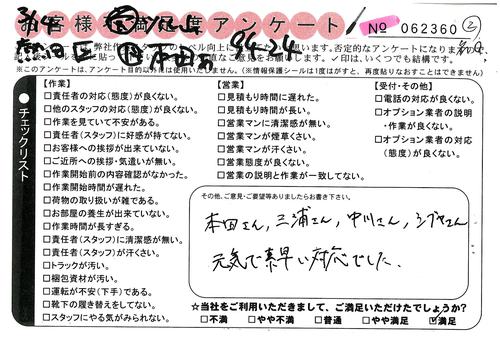 3/4
お客様満足度アンケート
№ 062360 ②
熱田区 本田 94-24
□責任者の対応(態度)が良くない。
□他のスタッフの対応(態度)が良くない。
□作業を見ていて不安がある。
□責任者(スタッフ)に好感が持てない。
□お客様への挨拶が出来ていない。
□ご近所への挨拶・気遣いが無い。
□作業開始前の内容確認がなかった。
□作業開始時間が遅れた。
□荷物の取り扱いが雑である。
□お部屋の養生が出来ていない。
□作業時間が長すぎる。
□責任者(スタッフ)に清潔感が無い。
□責任者(スタッフ)が汗くさい。
□トラックが汚い。
□梱包資材が汚い。
□運転が不安(下手)である。
□靴下の履き替えをしてない。
□スタッフにやる気がみられない。
【作業】
チェックリスト
※このアンケートは、アンケート目的以外には使用いたしません。(※情報保護シールは1度はがすと、再度貼りなおすことはできません)
【営業】
□見積もり時間に遅れた。
□見積もり時間が長い。
□営業マンに清潔感が無い。
□営業マンが煙草くさい。
□営業マンが汗くさい。
□営業態度が良くない。
□営業の説明と作業が違う。
【受付・その他】
□電話の対応が良くない。
□オプション業者の説明
・作業が良くない。
□オプション業者の対応
(態度)が良くない。
その他、ご意見・ご要望等ありましたらお書き下さい。
本田さん, 三浦さん, 中川さん, シブヤさん
元気で素早い対応でした。
☆当社をご利用いただきまして、ご満足いただけたでしょうか?
□不満 □やや不満 □普通 □やや満足 ☑満足